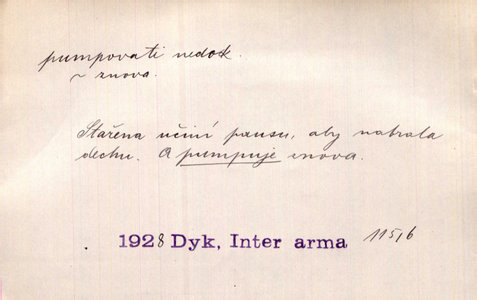 pumpovati nedok.
~ znova.
Stařena učiní pausu, aby nabrala
dechu. A pumpuje znova.
1928 Dyk, Inter arma 115/6